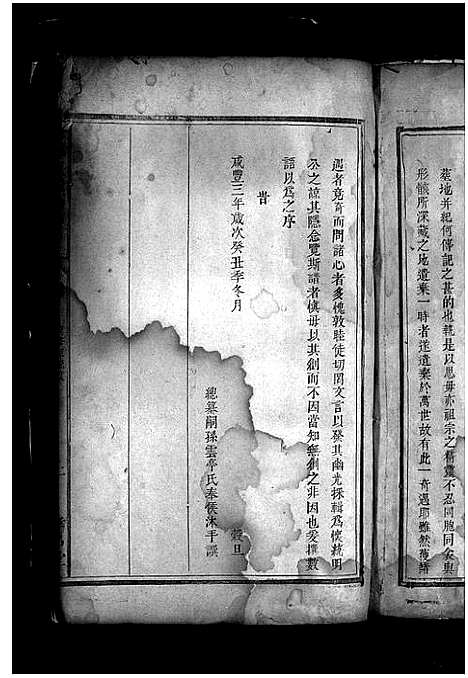 墓地并紀何傳記之甚的也輒是以恩毋亦祖宗之精靈不忍同胞同象與
形骸所深藏之地遺棄一時者遂遺棄於萬世故有此一奇遇耶雖然薄緒
遇者竟奇而問諸心者多愧敦睦徒切閱文言以發其幽光採輯為懷藉明
公之諒其隱念覽斯譜者慎毋以其創而不因當知無創之非因也爰撰數
語以為之序
旹
咸豐三年歲次癸丑季冬月 穀旦
總纂嗣孫雲亭氏奉候沐手譔